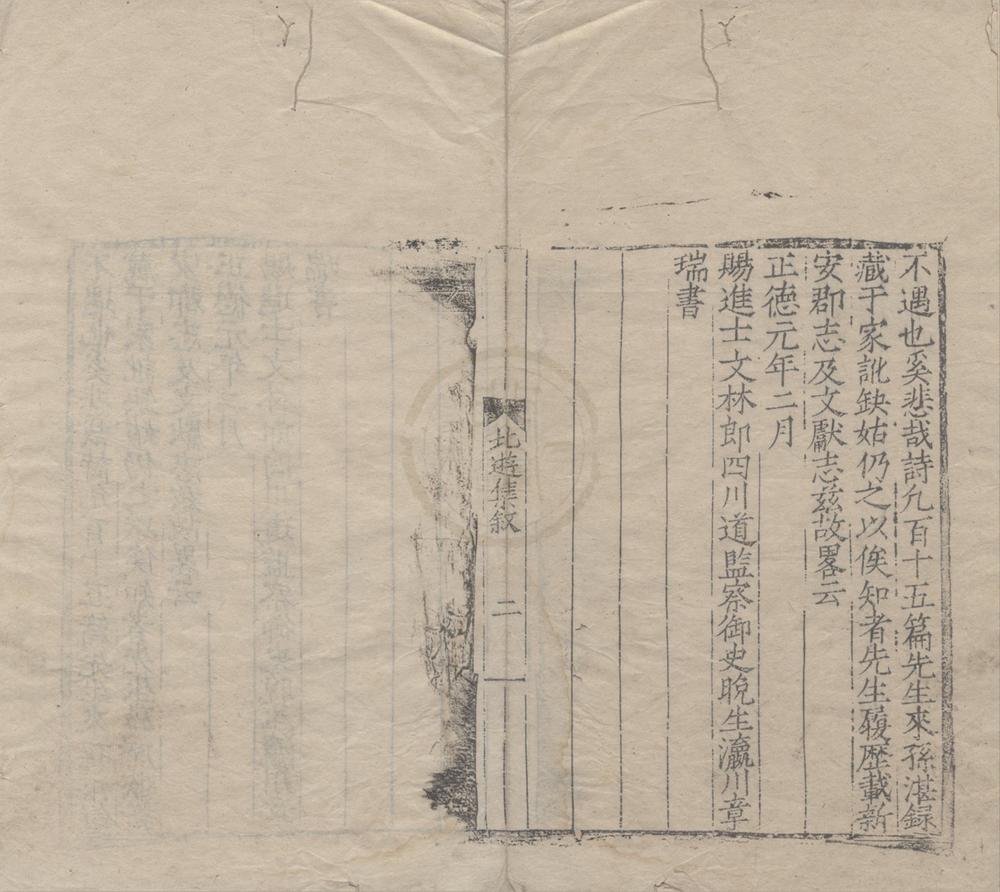 不遇也奚悲哉詩凢百十五篇先生來孫湛録
藏于家訛缺姑仍之以俟知者先生履歷載新
安郡志及文獻志兹故畧云
正德元年二月
賜進士文林郎四川道監察御史晩生瀛川章
瑞書
北遊集叙
二